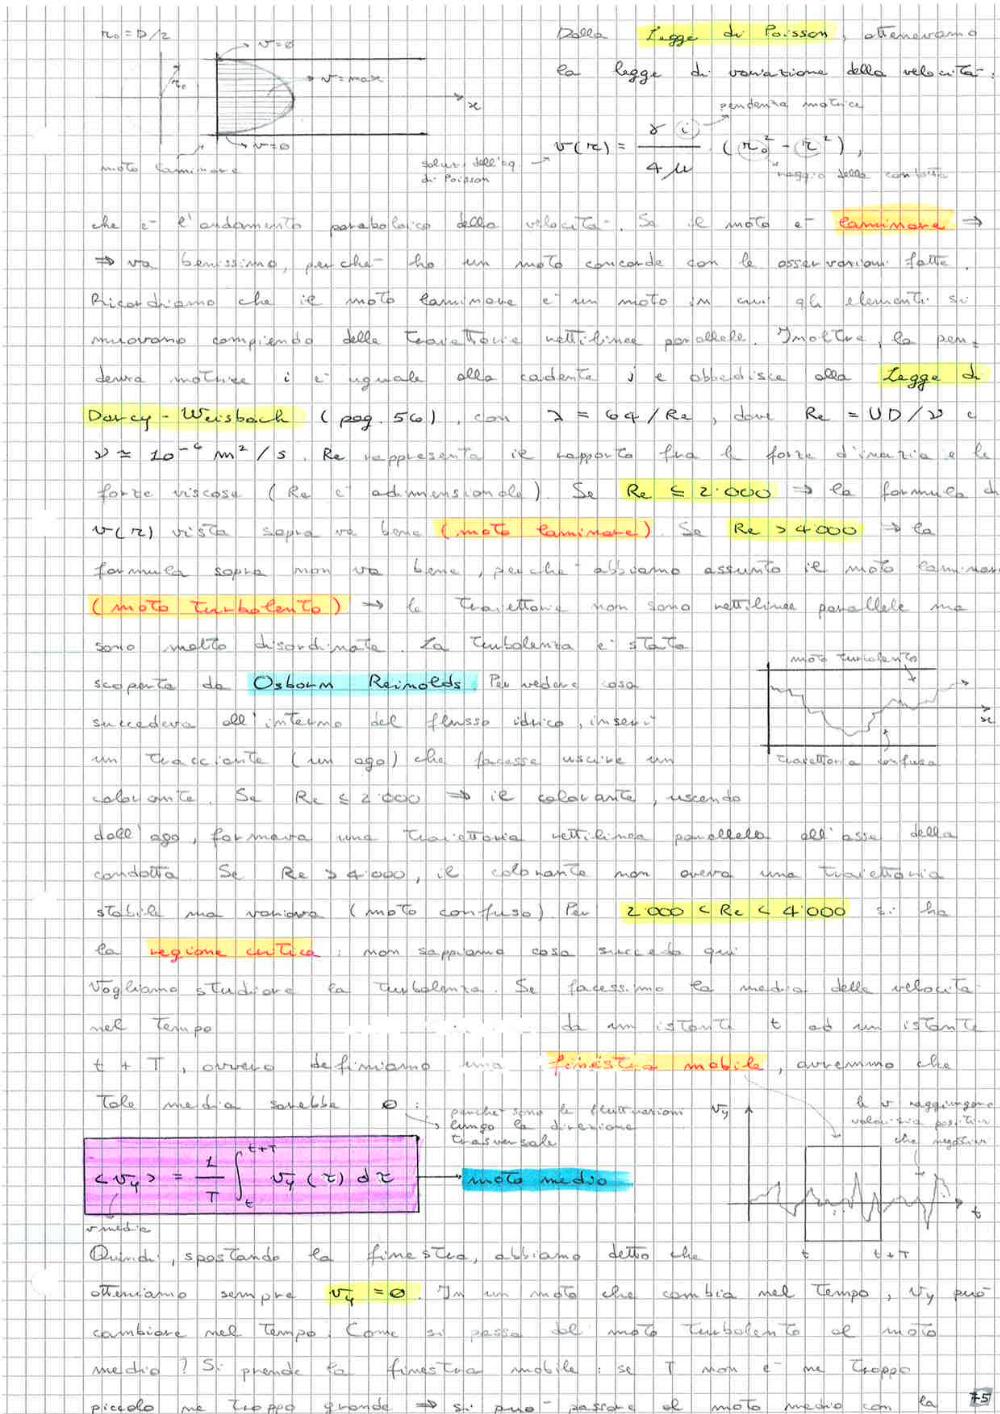 r₀ = D/2
v=0
r₀
v=max
x
v=0
moto laminare
Dalla Legge di Poisson, ottenevamo
la legge di variazione della velocità:
pendenza motrice
v(r) = γ i / 4 μ · (r₀² - r²),
soluz. dell'eq. di Poisson
raggio della condotta
che è l'andamento parabolico della velocità. Se il moto è laminare ⇒
⇒ va benissimo, perché ho un moto concorde con le osservazioni fatte.
Ricordiamo che il moto laminare è un moto in cui gli elementi si
muovano compiendo delle traiettorie rettilinee parallele. Inoltre, la pen=
denza motrice i è uguale alla cadente j e obbedisce alla Legge di
Darcy - Weisbach (pag. 56), con λ = 64/Re, dove Re = UD/ν e
ν ≃ 10⁻⁶ m²/s. Re rappresenta il rapporto fra le forze d'inerzia e le
forze viscose (Re è adimensionale). Se Re ≤ 2'000 ⇒ la formula di
v(r) vista sopra va bene (moto laminare). Se Re > 4'000 → la
formula sopra non va bene, perché abbiamo assunto il moto laminare
(moto turbolento) → le traiettorie non sono rettilinee parallele ma
sono molto disordinate. La turbolenza è stata
scoperta da Osborn Reinolds. Per vedere cosa
succedeva all'interno del flusso idrico, inserì
un tracciante (un ago) che facesse uscire un
colorante. Se Re ≤ 2'000 ⇒ il colorante, uscendo
moto turbolento
x
traiettoria confusa
dall'ago, formava una traiettoria rettilinea parallela all'asse della
condotta. Se Re > 4'000, il colorante non aveva una traiettoria
stabile ma variava (moto confuso). Per 2'000 < Re < 4'000 si ha
la regione critica: non sappiamo cosa succeda qui.
Vogliamo studiare la turbolenza. Se facessimo la media delle velocità
nel tempo da un istante t ad un istante
t + T, ovvero definiamo una finestra mobile, avremmo che
tale media sarebbe 0:
perché sono le fluttuazioni lungo la direzione trasversale
<vy> = 1/T ∫ₜᵗ⁺ᵀ vy(τ) dτ → moto medio
v media
vy
le v raggiungono valori sia positivi che negativi
t
t+T
t
Quindi, spostando la finestra, abbiamo detto che
otteniamo sempre vy = 0. In un moto che cambia nel tempo, vy può
cambiare nel tempo. Come si passa dal moto turbolento al moto
medio? Si prende la finestra mobile: se T non è né troppo
piccolo né troppo grande ⇒ si può passare al moto medio con la
75